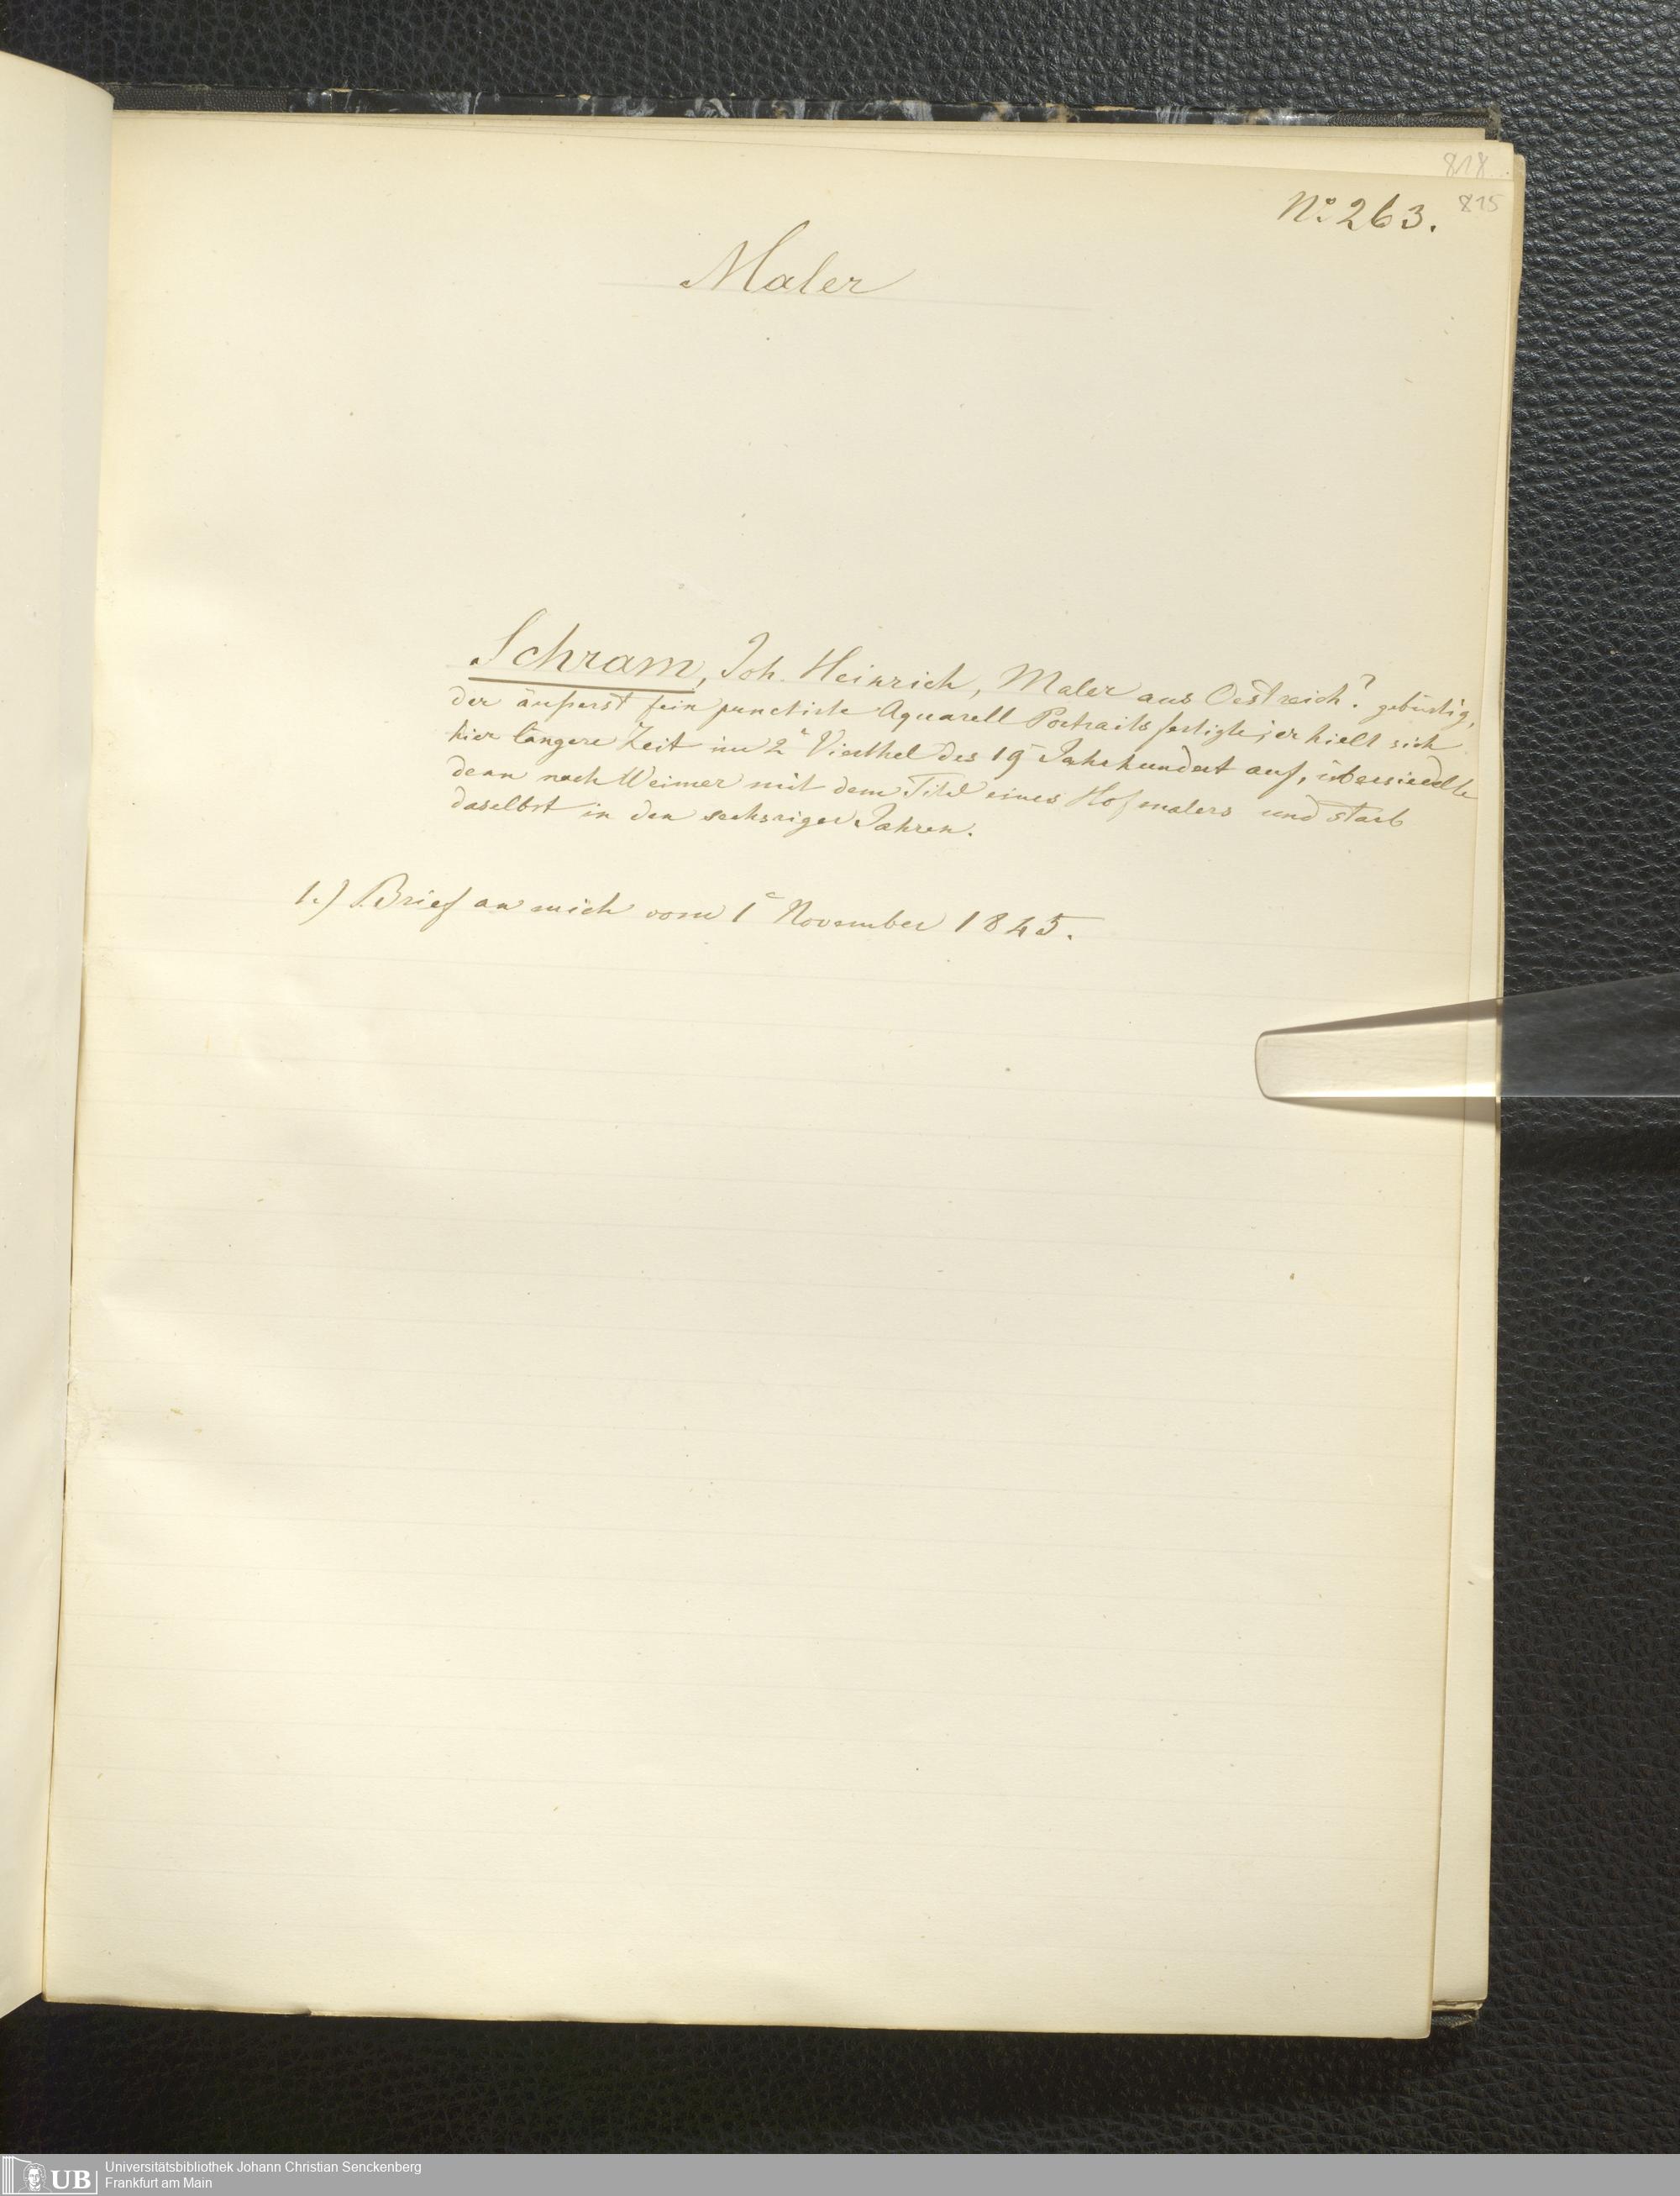 818
815
No 263.
Maler
Schram, Joh. Heinrich, Maler aus Oestreich? gebürtig,
der äußerst fein punctirte Aquarell Portraits fertigte; er hielt sich
hier längere Zeit im 2n Vierthel des 19n Jahrhundert auf, übersiedlte
dann nach Weimar mit dem Titel eines Hofmalers und starb
daselbst in den sechsziger Jahren.
1.) Brief an mich vom 1n November 1845.
UB
Universitätsbibliothek Johann Christian Senckenberg
Frankfurt am Main